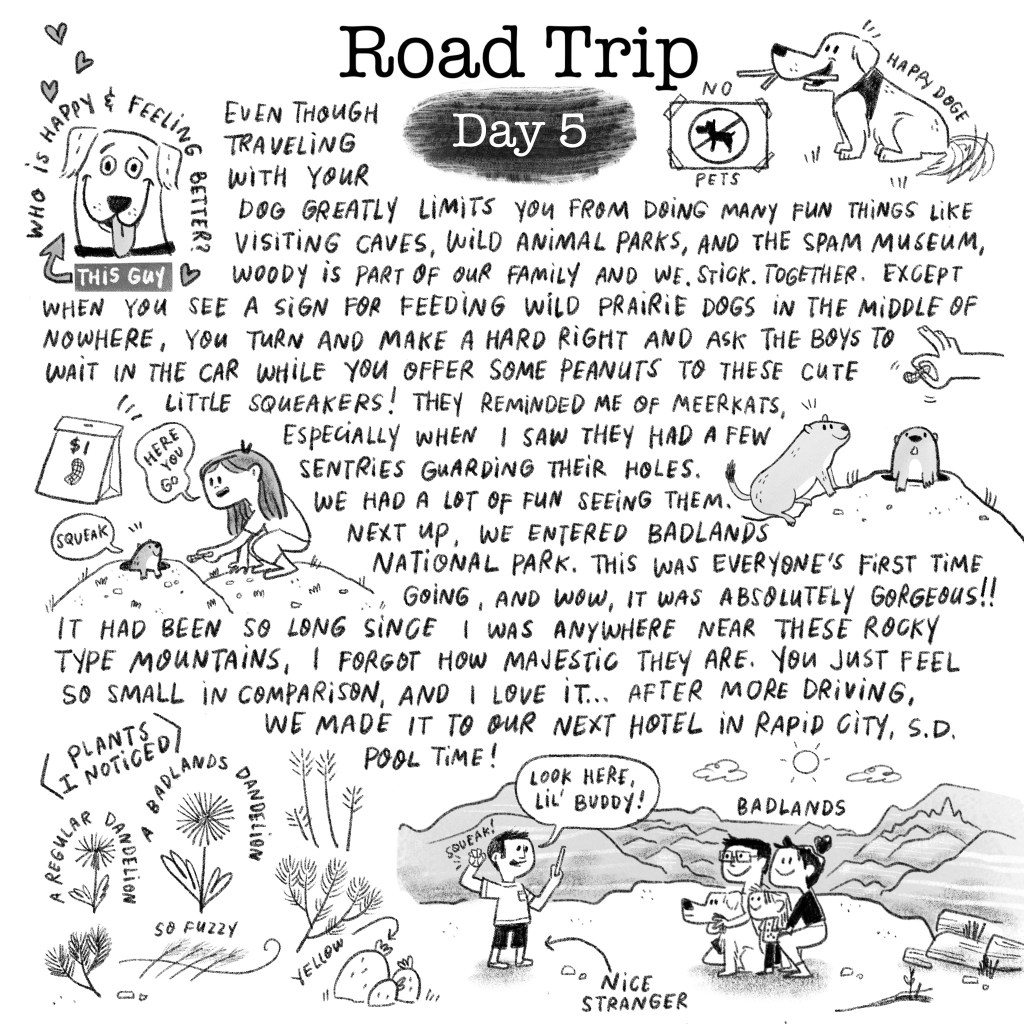 Road Trip
Day 5
WHO IS HAPPY & FEELING BETTER?
THIS GUY
NO
PETS
HAPPY DOGE
EVEN THOUGH
TRAVELING
WITH YOUR
DOG GREATLY LIMITS YOU FROM DOING MANY FUN THINGS LIKE
VISITING CAVES, WILD ANIMAL PARKS, AND THE SPAM MUSEUM,
WOODY IS PART OF OUR FAMILY AND WE. STICK. TOGETHER. EXCEPT
WHEN YOU SEE A SIGN FOR FEEDING WILD PRAIRIE DOGS IN THE MIDDLE OF
NOWHERE, YOU TURN AND MAKE A HARD RIGHT AND ASK THE BOYS TO
WAIT IN THE CAR WHILE YOU OFFER SOME PEANUTS TO THESE CUTE
LITTLE SQUEAKERS! THEY REMINDED ME OF MEERKATS,
ESPECIALLY WHEN I SAW THEY HAD A FEW
SENTRIES GUARDING THEIR HOLES.
WE HAD A LOT OF FUN SEEING THEM.
NEXT UP, WE ENTERED BADLANDS
NATIONAL PARK. THIS WAS EVERYONE'S FIRST TIME
GOING, AND WOW, IT WAS ABSOLUTELY GORGEOUS!!
IT HAD BEEN SO LONG SINCE I WAS ANYWHERE NEAR THESE ROCKY
TYPE MOUNTAINS, I FORGOT HOW MAJESTIC THEY ARE. YOU JUST FEEL
SO SMALL IN COMPARISON, AND I LOVE IT... AFTER MORE DRIVING,
WE MADE IT TO OUR NEXT HOTEL IN RAPID CITY, S.D.
POOL TIME!
$1
HERE
YOU
GO
SQUEAK
PLANTS
I NOTICED
A REGULAR DANDELION
A BADLANDS DANDELION
SO FUZZY
YELLOW
LOOK HERE,
LIL' BUDDY!
SQUEAK!
BADLANDS
NICE
STRANGER